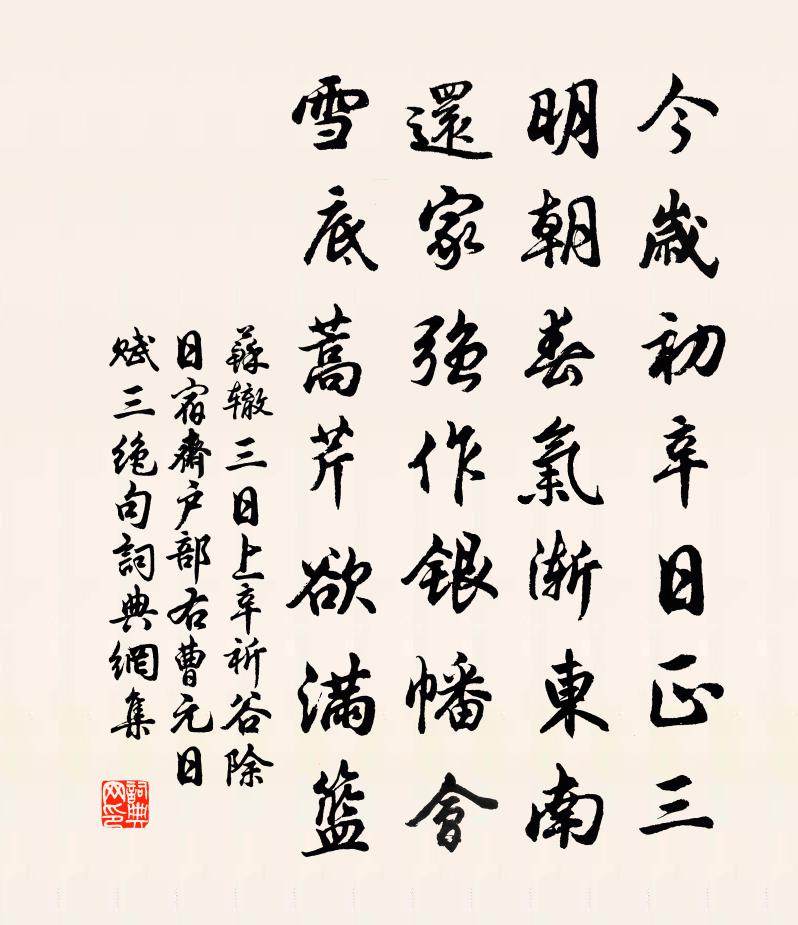 今歲初辛日正三
明朝春氣漸東南
還家強作銀幡會
雪底蒿芹欲滿籃
蘇辙三日上辛祈谷除
日宿齋戶部右曹元日
賦三絶句詞典網集
詞典网印